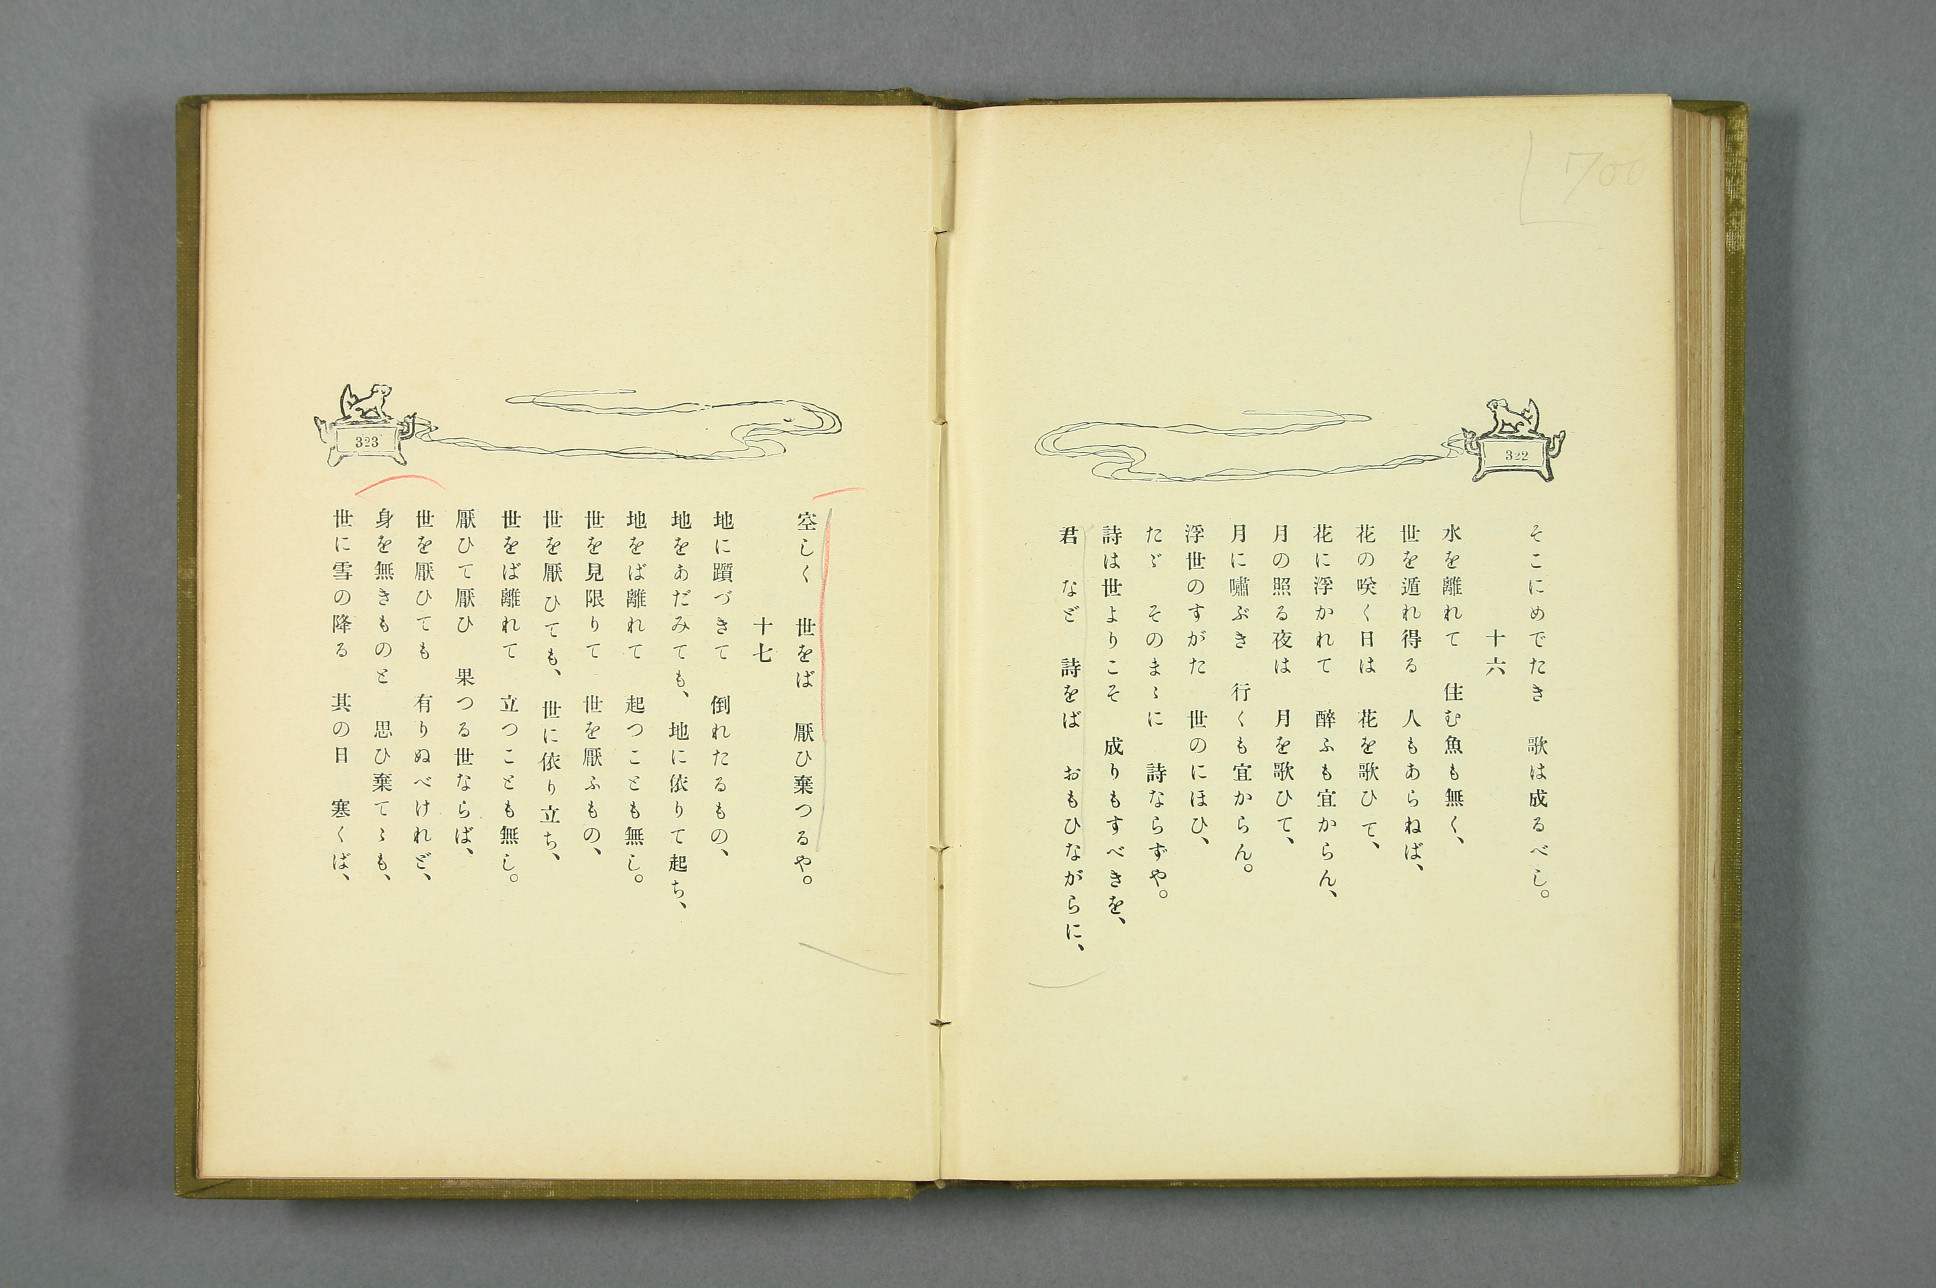 700
322
そこにめでたき　歌は成るべし。
十六
水を離れて　住む魚も無く、
世を遁れ得る　人もあらねば、
花の咲く日は　花を歌ひて、
花に浮かれて　醉ふも宜からん、
月の照る夜は　月を歌ひて、
月に嘯ぶき　行くも宜からん。
浮世のすがた　世のにほひ、
たゞ　そのまゝに　詩ならずや。
詩は世よりこそ　成りもすべきを、
君　など　詩をば　おもひながらに、
323
空しく　世をば　厭ひ棄つるや。
十七
地に躓づきて　倒れたるもの、
地をあだみても、　地に依りて起ち、
地をば離れて　起つことも無し。
世を見限りて　世を厭ふもの、
世を厭ひても、　世に依り立ち、
世をば離れて　立つことも無し。
厭ひて厭ひ　果つる世ならば、
世を厭ひても　有りぬべけれど、
身を無きものと　思ひ棄てゝも、
世に雪の降る　其の日　寒くば、